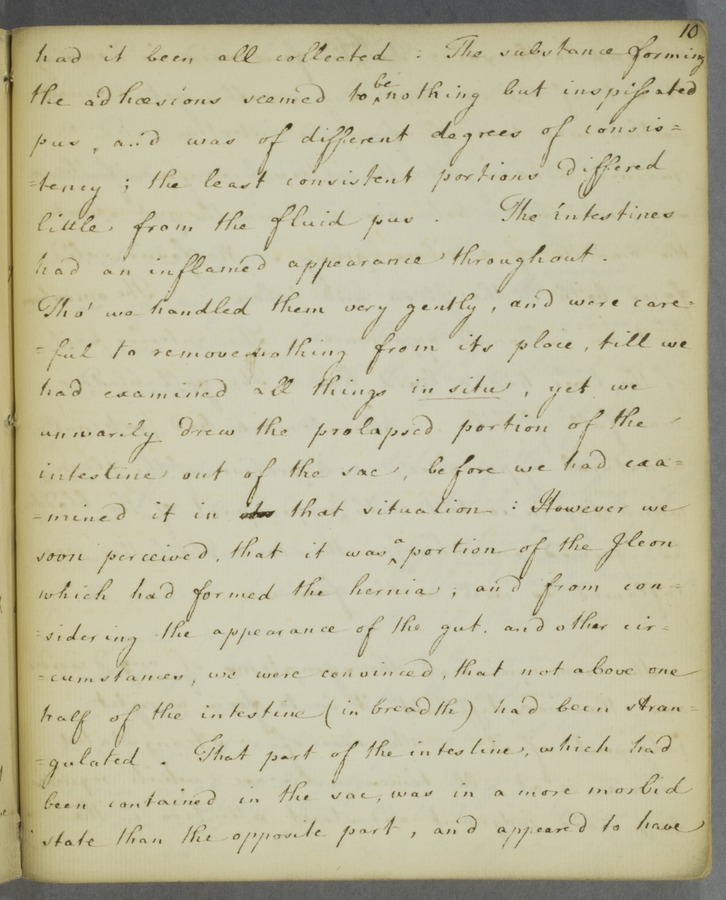 10
had it been all collected : The substance forming
the adhæsions seemed to be nothing but inspissated
pus, and was of different degrees of consis=
=tency ; the least consistent portions differed
little from the fluid pus . The intestines
had an inflamed appearance throughout .
Tho' we handled them very gently, and were care=
=ful to remove nothing from its place, till we
had examined all things in situ, yet we
unwarily drew the prolapsed portion of the
intestine out of the sac, before we had exa=
=mined it in that situation : However we
soon perceived, that it was a portion of the Ileon
which had formed the hernia ; and from con=
=sidering the appearance of the gut, and other cir=
=cumstances, we were convinced, that not above one
half of the intestine (in breadth) had been stran=
=gulated . That part of the intestine, which had
been contained in the sac, was in a more morbid
state than the opposite part, and appeared to have